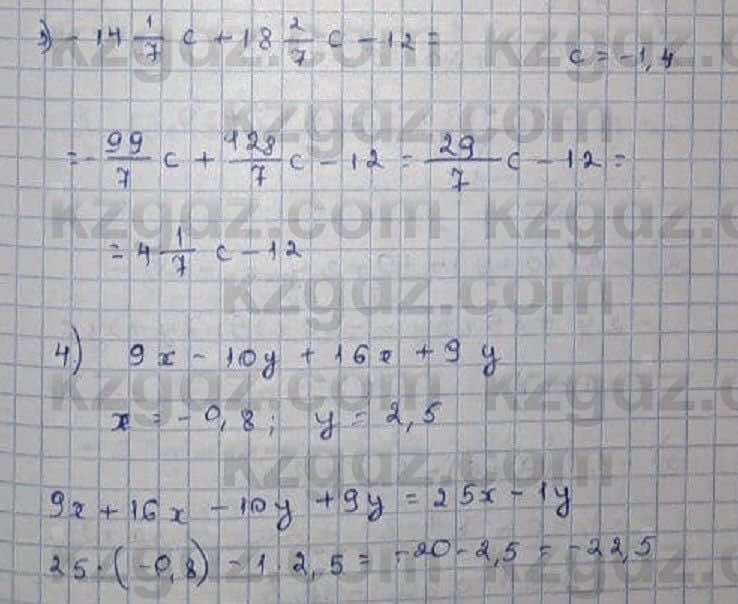 3) - 14 1/7 c + 18 2/7 c - 12 = c = -1,4
= - 99/7 c + 128/7 c - 12 = 29/7 c - 12 =
= 4 1/7 c - 12
4) 9x - 10y + 16x + 9y
x = -0,8; y = 2,5
9x + 16x - 10y + 9y = 25x - 1y
25·(-0,8) - 1·2,5 = -20 - 2,5 = -22,5
kzgdz.com